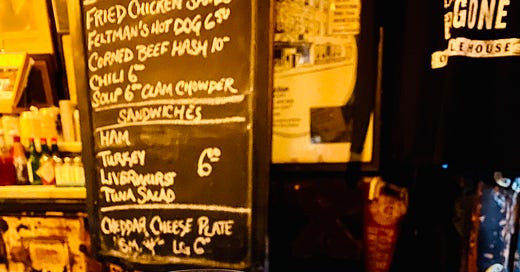 FRIED CHICKEN
FELTMAN'S HOT DOG 6.50
CORNED BEEF HASH 10-
CHILI 6-
SOUP 6- CLAM CHOWDER
SANDWICHES
HAM
TURKEY 6.00
LIVERWURST
TUNA SALAD
CHEDDAR CHEESE PLATE
SM. 4- LG 6-
GONE
LEHOUSE